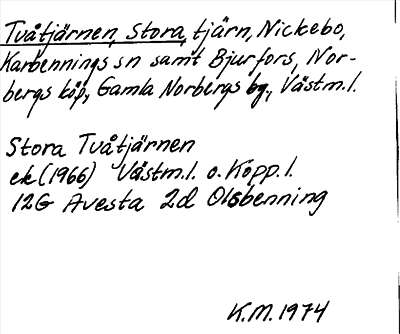 Tvåtjärnen, Stora, tjärn, Nickebo,
Karbennings sn samt Bjurfors, Nor-
bergs köp, Gamla Norbergs bg., Västm.l.
Stora Tvåtjärnen
ek (1966) Västm.l. o. Kopp.l.
12G Avesta 2d Olsbenning
K.M. 1974